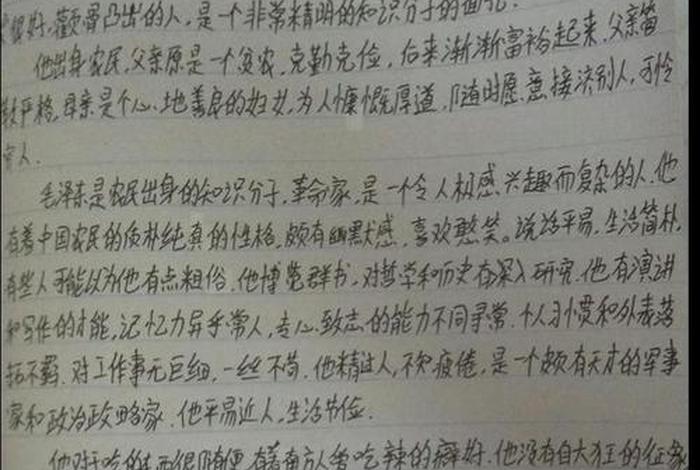 很好,颧骨凸出的人,是一个非常精明的知识分子的面孔。
他出身农民,父亲原是一个贫农,克勤克俭,后来渐渐富裕起来,父亲管
教严格,母亲是个心地善良的妇女,为人慷慨厚道,随时愿意接济别人,可怜
穷人.
毛泽东是农民出身的知识分子,革命家,是一个令人极感兴趣而复杂的人.他
有着中国农民的质朴纯真的性格,颇有幽默感,喜欢憨笑。说话平易,生活简朴,
有些人可能以为他有点粗俗.他博览群书,对哲学和历史有深入研究.他有演讲
和写作的才能,记忆力异乎常人,专心致志的能力不同寻常.个人习惯和外表落
拓不羁.对工作事无巨细,一丝不苟.他精过人,不知疲倦,是一个颇有天才的军事
家和政治政略家.他平易近人,生活节俭.
他对于吃的东西很随便,有着南方人爱吃辣的癖好.他没有自大狂的征象